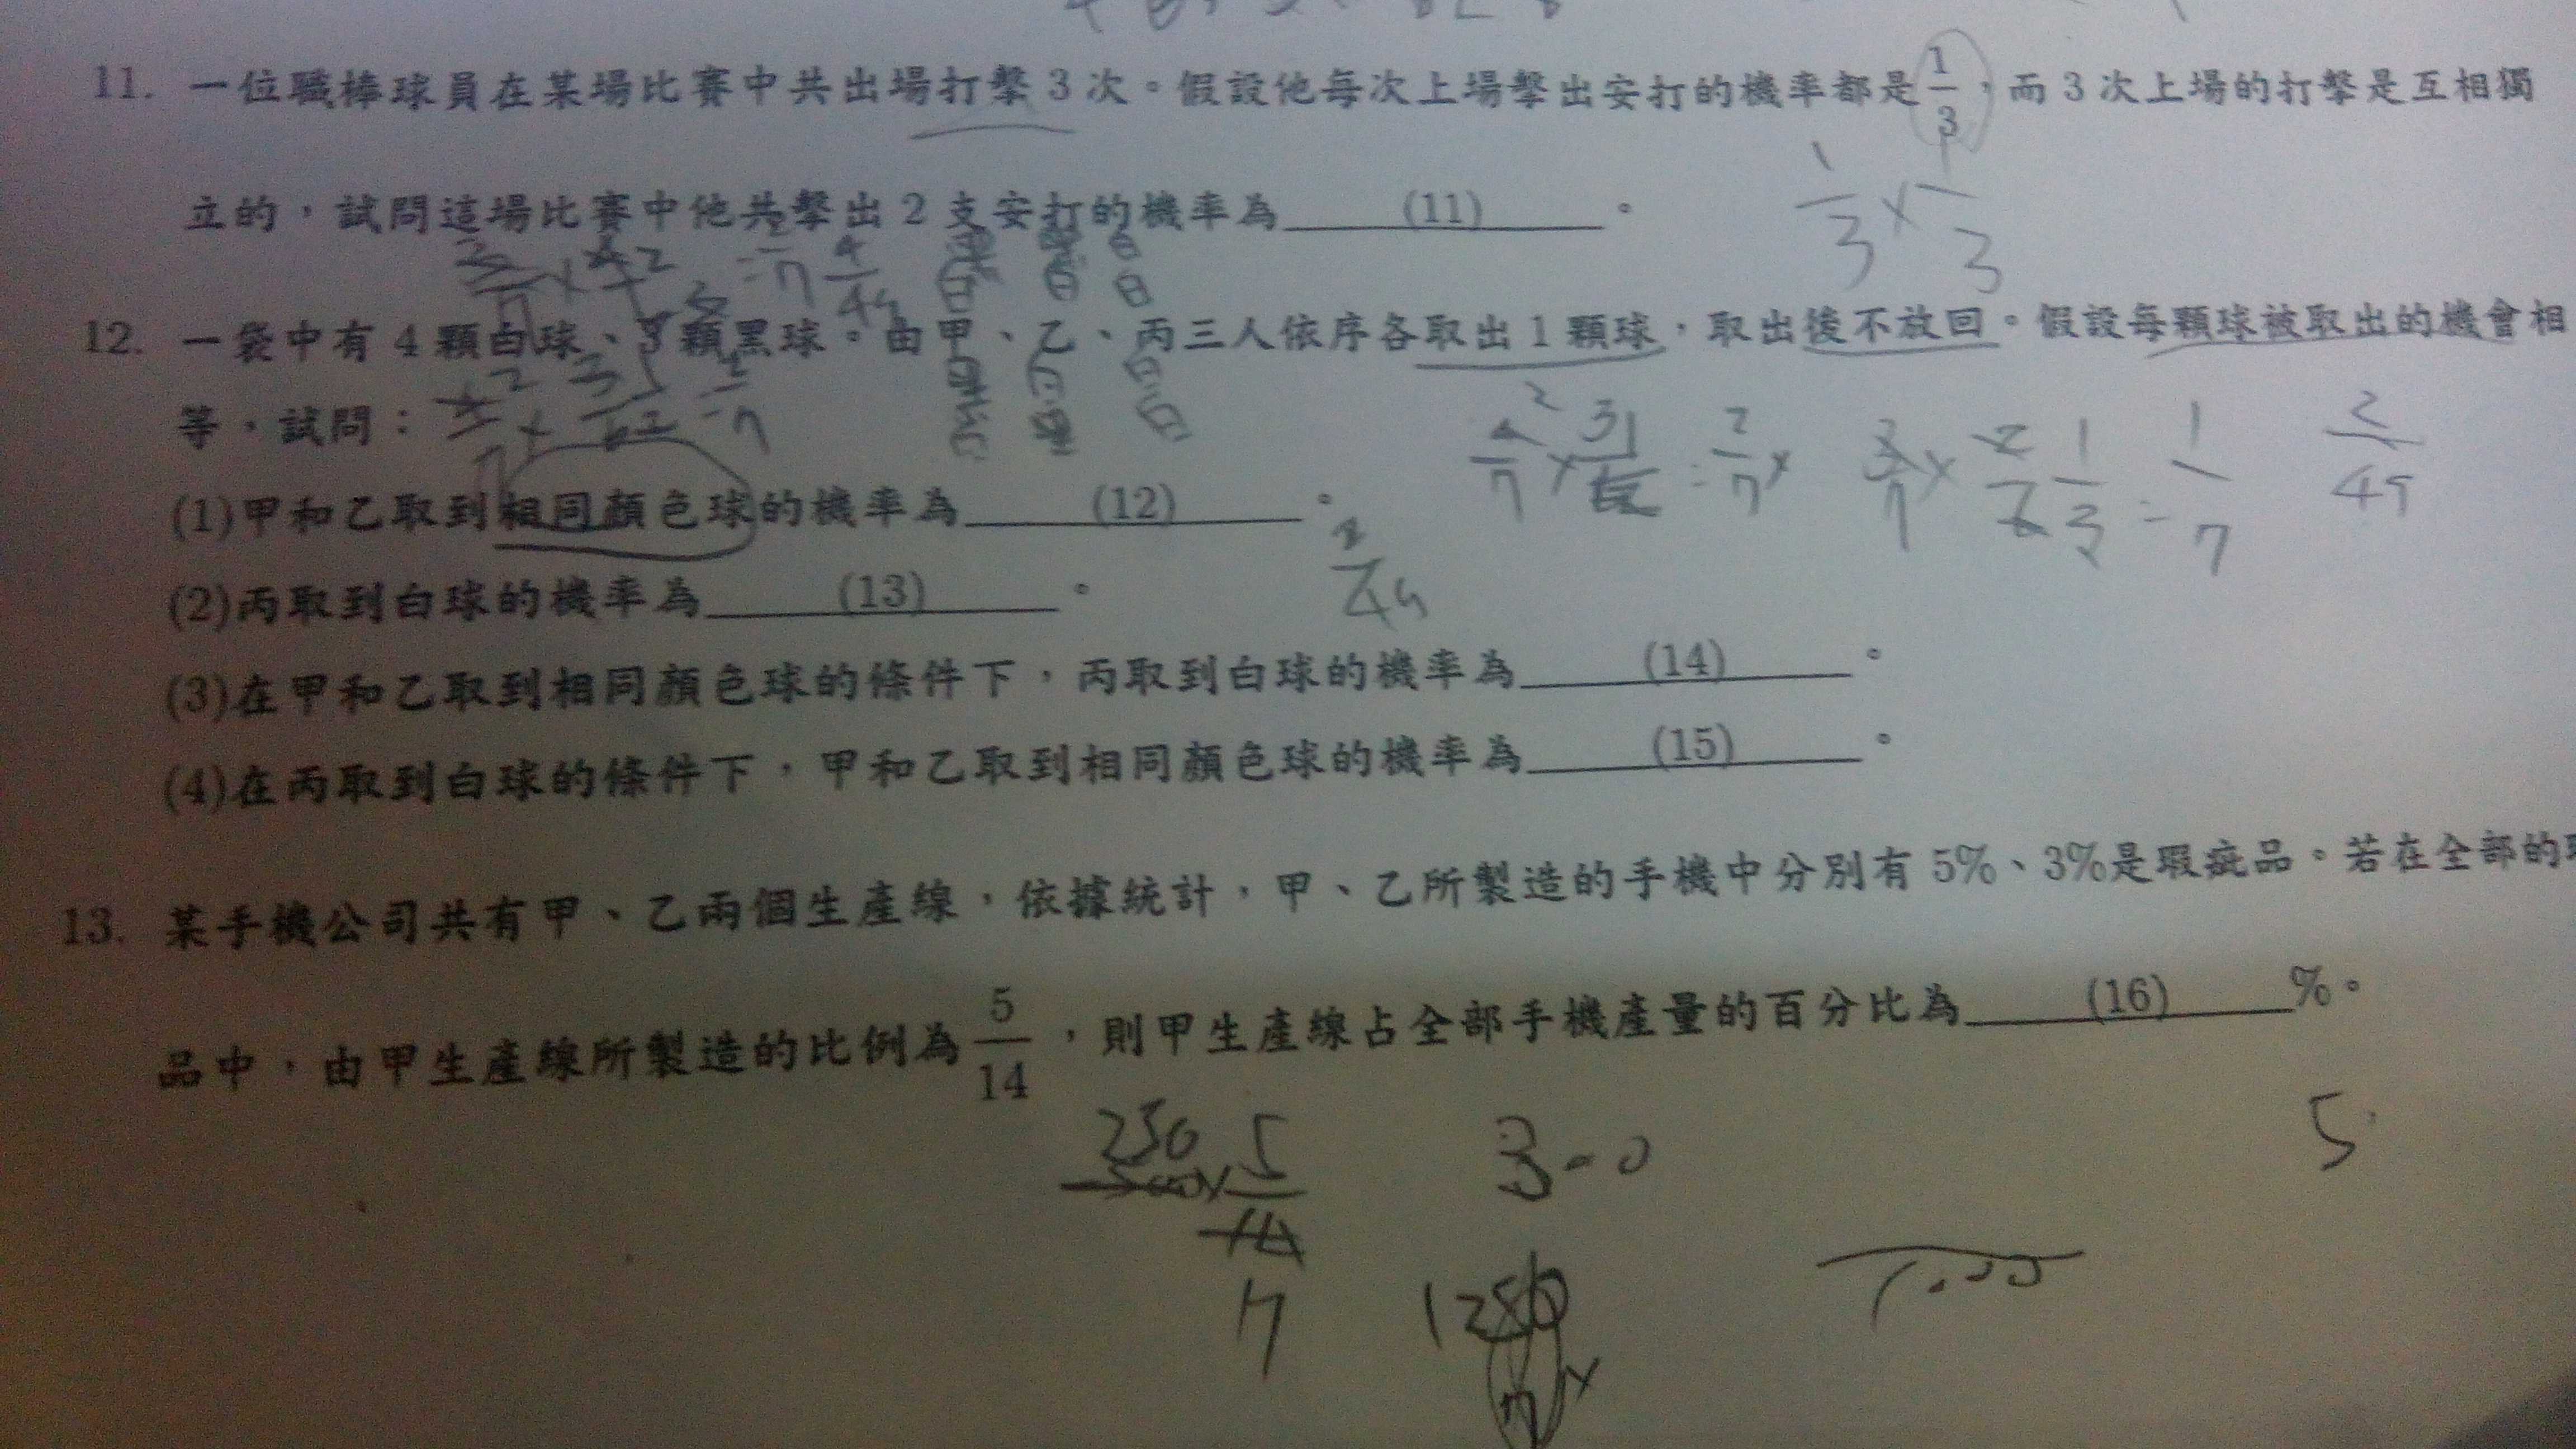 11. 一位職棒球員在某場比賽中共出場打擊 3 次。假設他每次上場擊出安打的機率都是 1/3，而 3 次上場的打擊是互相獨
1/3 × 1/3
立的，試問這場比賽中他共擊出 2 支安打的機率為 (11) 。
12. 一袋中有 4 顆白球、3 顆黑球。由甲、乙、丙三人依序各取出 1 顆球，取出後不放回。假設每顆球被取出的機會相
等，試問：
= 2/7
= 2/7 ×
= 1/7
2/49
(1)甲和乙取到相同顏色球的機率為 (12) 。
(2)丙取到白球的機率為 (13) 。
(3)在甲和乙取到相同顏色球的條件下，丙取到白球的機率為 (14) 。
(4)在丙取到白球的條件下，甲和乙取到相同顏色球的機率為 (15) 。
13. 某手機公司共有甲、乙兩個生產線，依據統計，甲、乙所製造的手機中分別有 5%、3%是瑕疵品。若在全部的
品中，由甲生產線所製造的比例為 5/14，則甲生產線占全部手機產量的百分比為 (16) %。
250 5
5
7